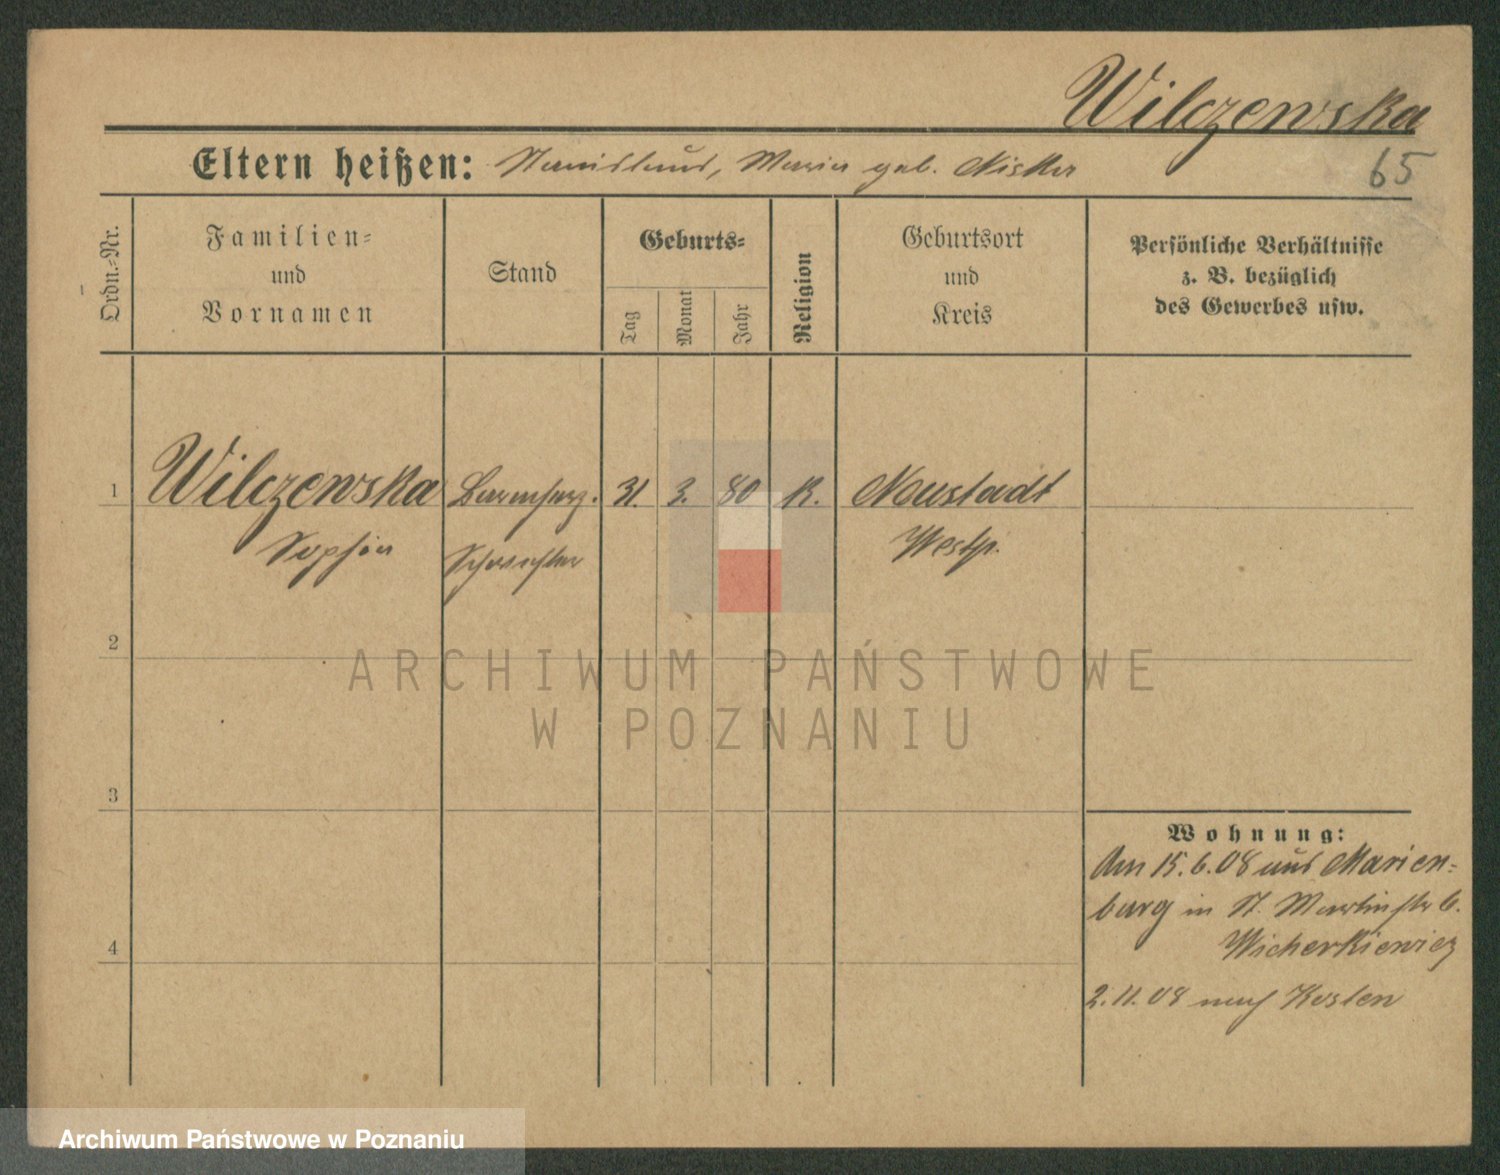 Wilczewska
Eltern heißen: Stanislaus, Maria geb.
65
Ordn.=Nr.
Familien=
und
Vornamen
Stand
Geburts=
Tag
Monat
Jahr
Religion
Geburtsort
und
Kreis
Persönliche Verhältnisse
z. B. bezüglich
des Gewerbes usw.
1 Wilczewska Barmherz. 31. 3. 80 K. Neustadt
Sophia Schwester Westp.
2
3
4
Wohnung:
Am 15.6.08 aus Marien-
burg in St. Martinstr 6.
Wicherkiewicz
2.11.08 nach Kosten
ARCHIWUM PAŃSTWOWE
W POZNANIU
Archiwum Państwowe w Poznaniu